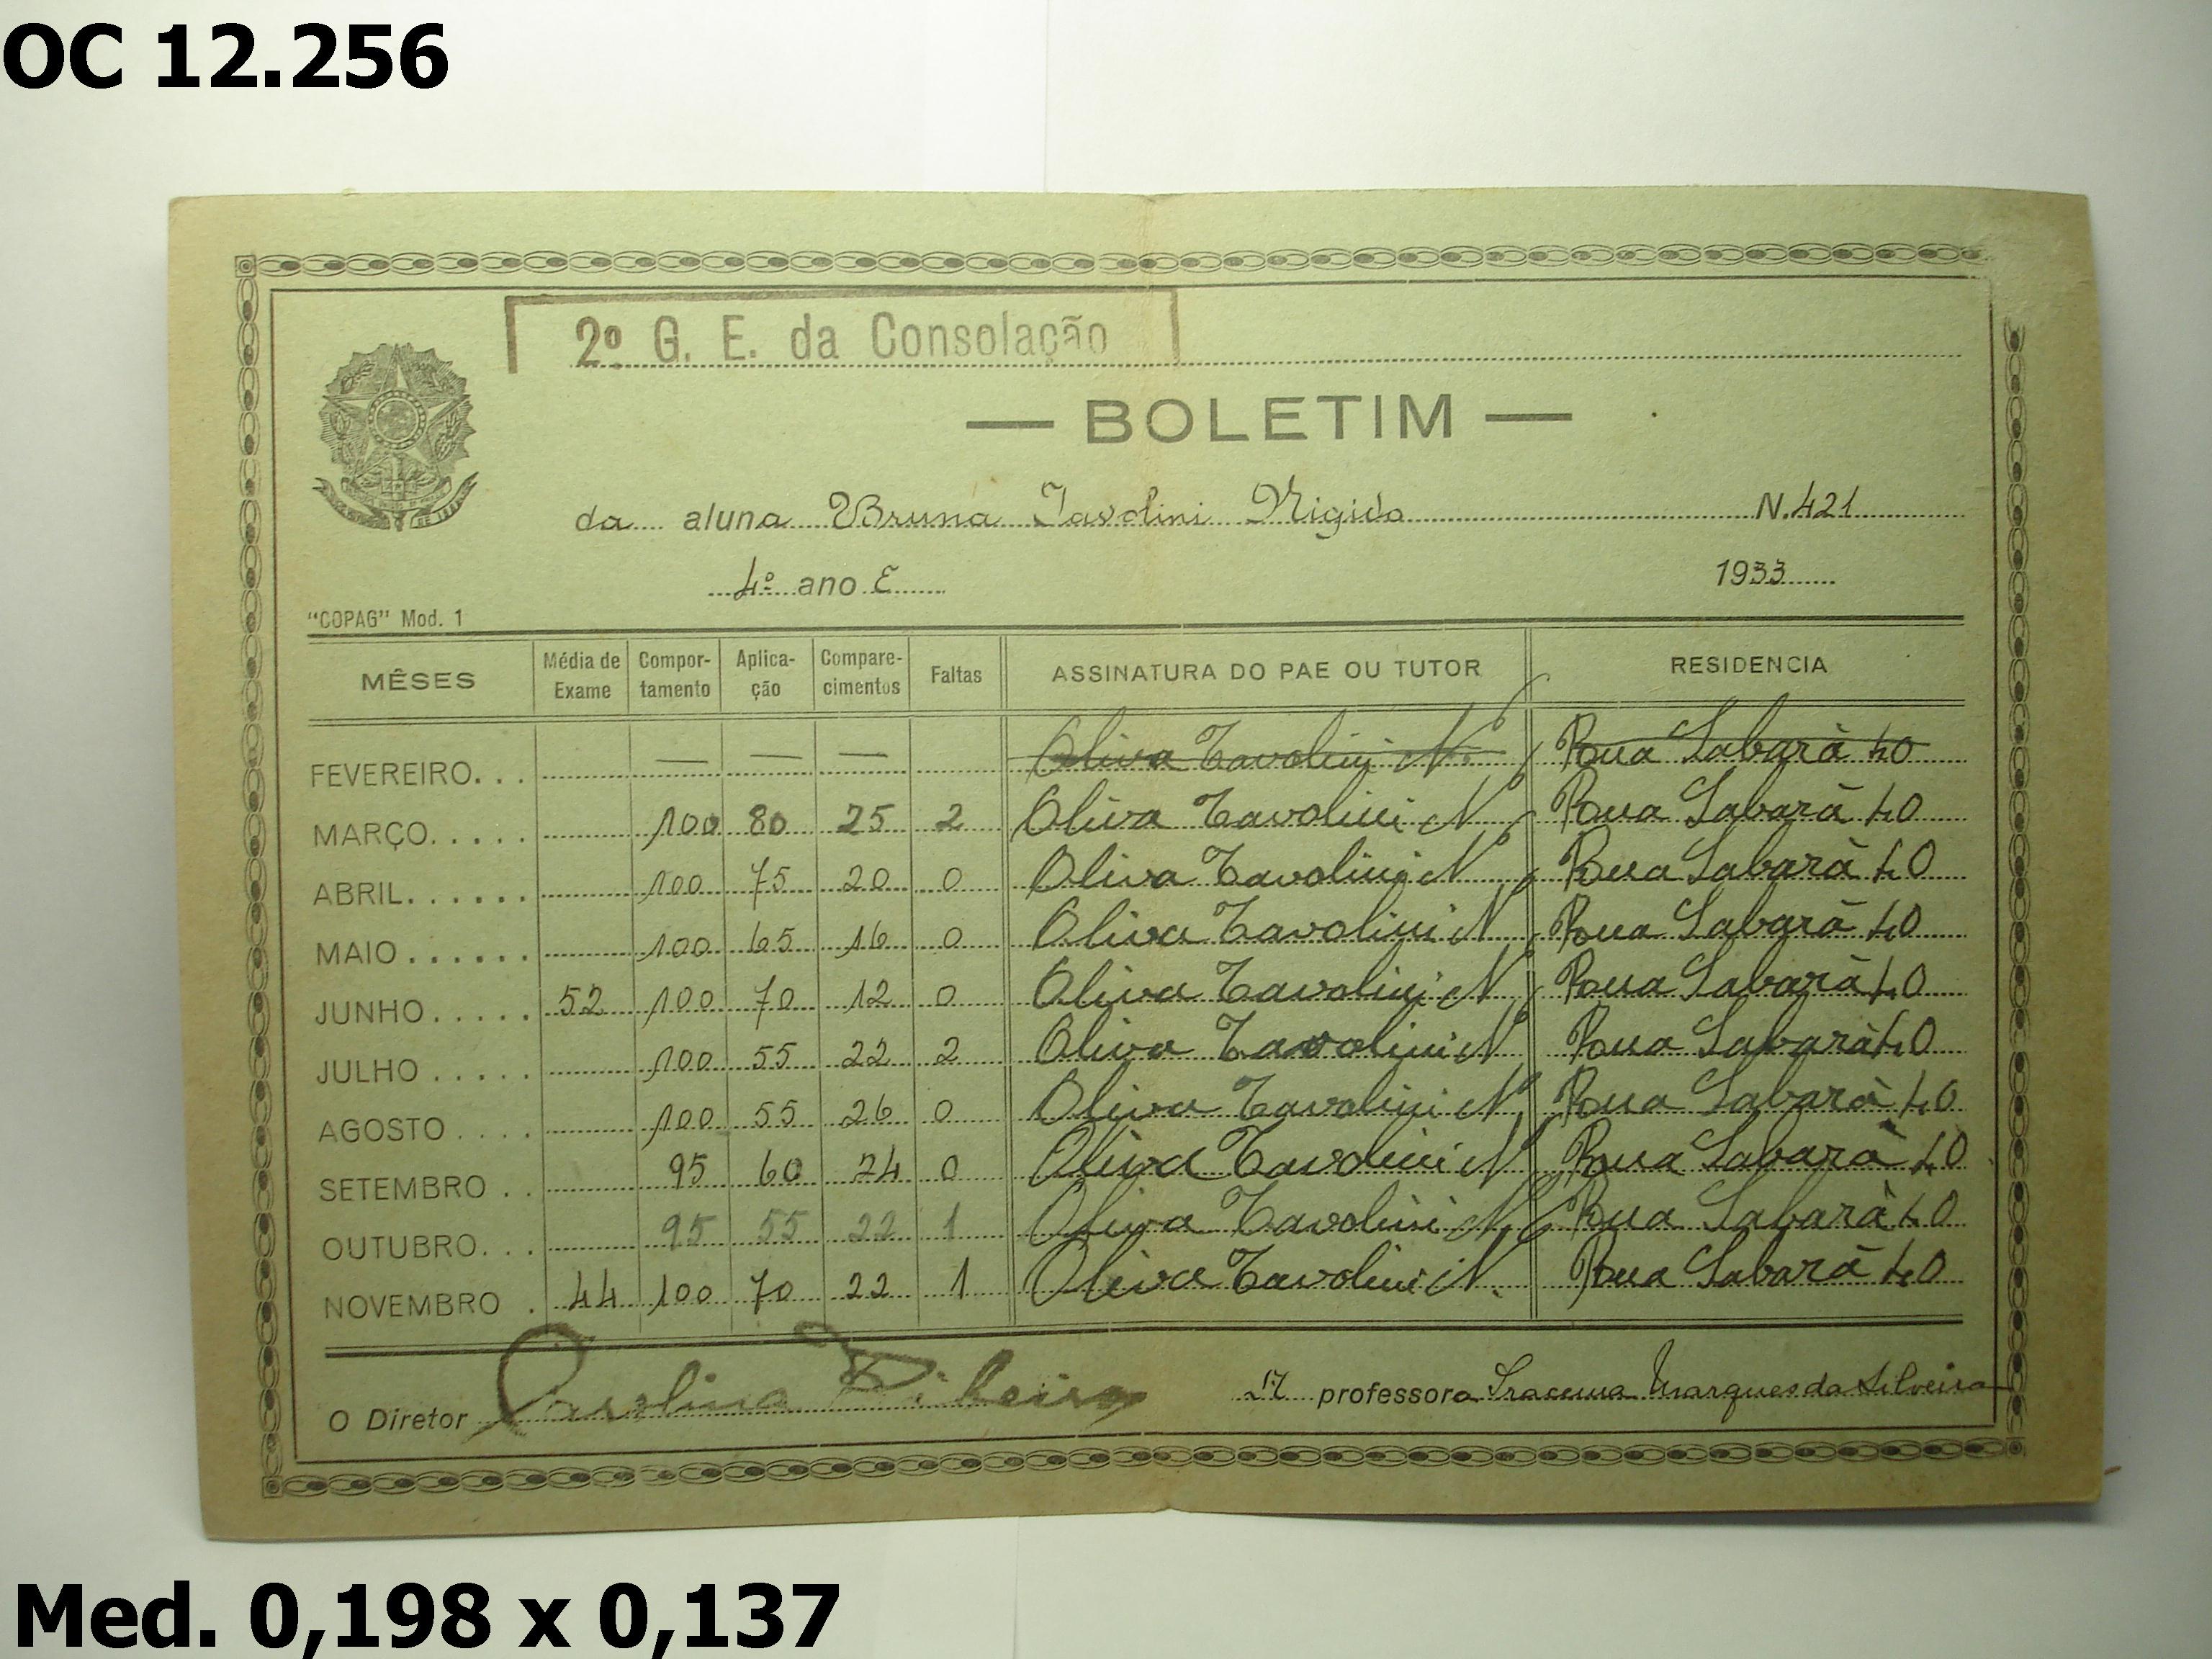 OC 12.256
2º G. E. da Consolação
— BOLETIM —
da aluna Bruna Tavolini Nigido N. 421
4º ano E 1933
"COPAG" Mod. 1
MÊSES Média de Exame Comportamento Aplicação Comparecimentos Faltas ASSINATURA DO PAE OU TUTOR RESIDENCIA
FEVEREIRO... — — — Oliva Tavolini N. Rua Sabarà 40
MARÇO..... 100 80 25 2 Oliva Tavolini N Rua Sabarà 40
ABRIL...... 100 75 20 0 Oliva Tavolini N Rua Sabarà 40
MAIO...... 100 65 16 0 Oliva Tavolini N Rua Sabarà 40
JUNHO..... 52 100 70 12 0 Oliva Tavolini N Rua Sabarà 40
JULHO..... 100 55 22 2 Oliva Tavolini N Rua Sabarà 40
AGOSTO.... 100 55 26 0 Oliva Tavolini N Rua Sabarà 40
SETEMBRO.. 95 60 24 0 Oliva Tavolini N Rua Sabarà 40
OUTUBRO... 95 55 22 1 Oliva Tavolini N Rua Sabarà 40
NOVEMBRO. 44 100 70 22 1 Oliva Tavolini N. Rua Sabarà 40
O Diretor Carolina Ribeiro A professora Iracema Marques da Silveira
Med. 0,198 x 0,137